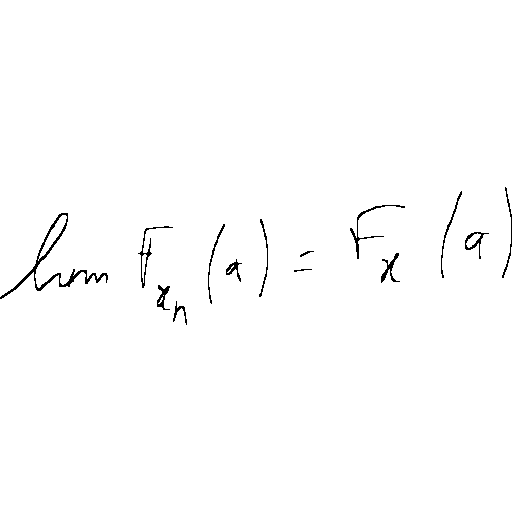 lim F_{x_n}(a) = F_x(a)